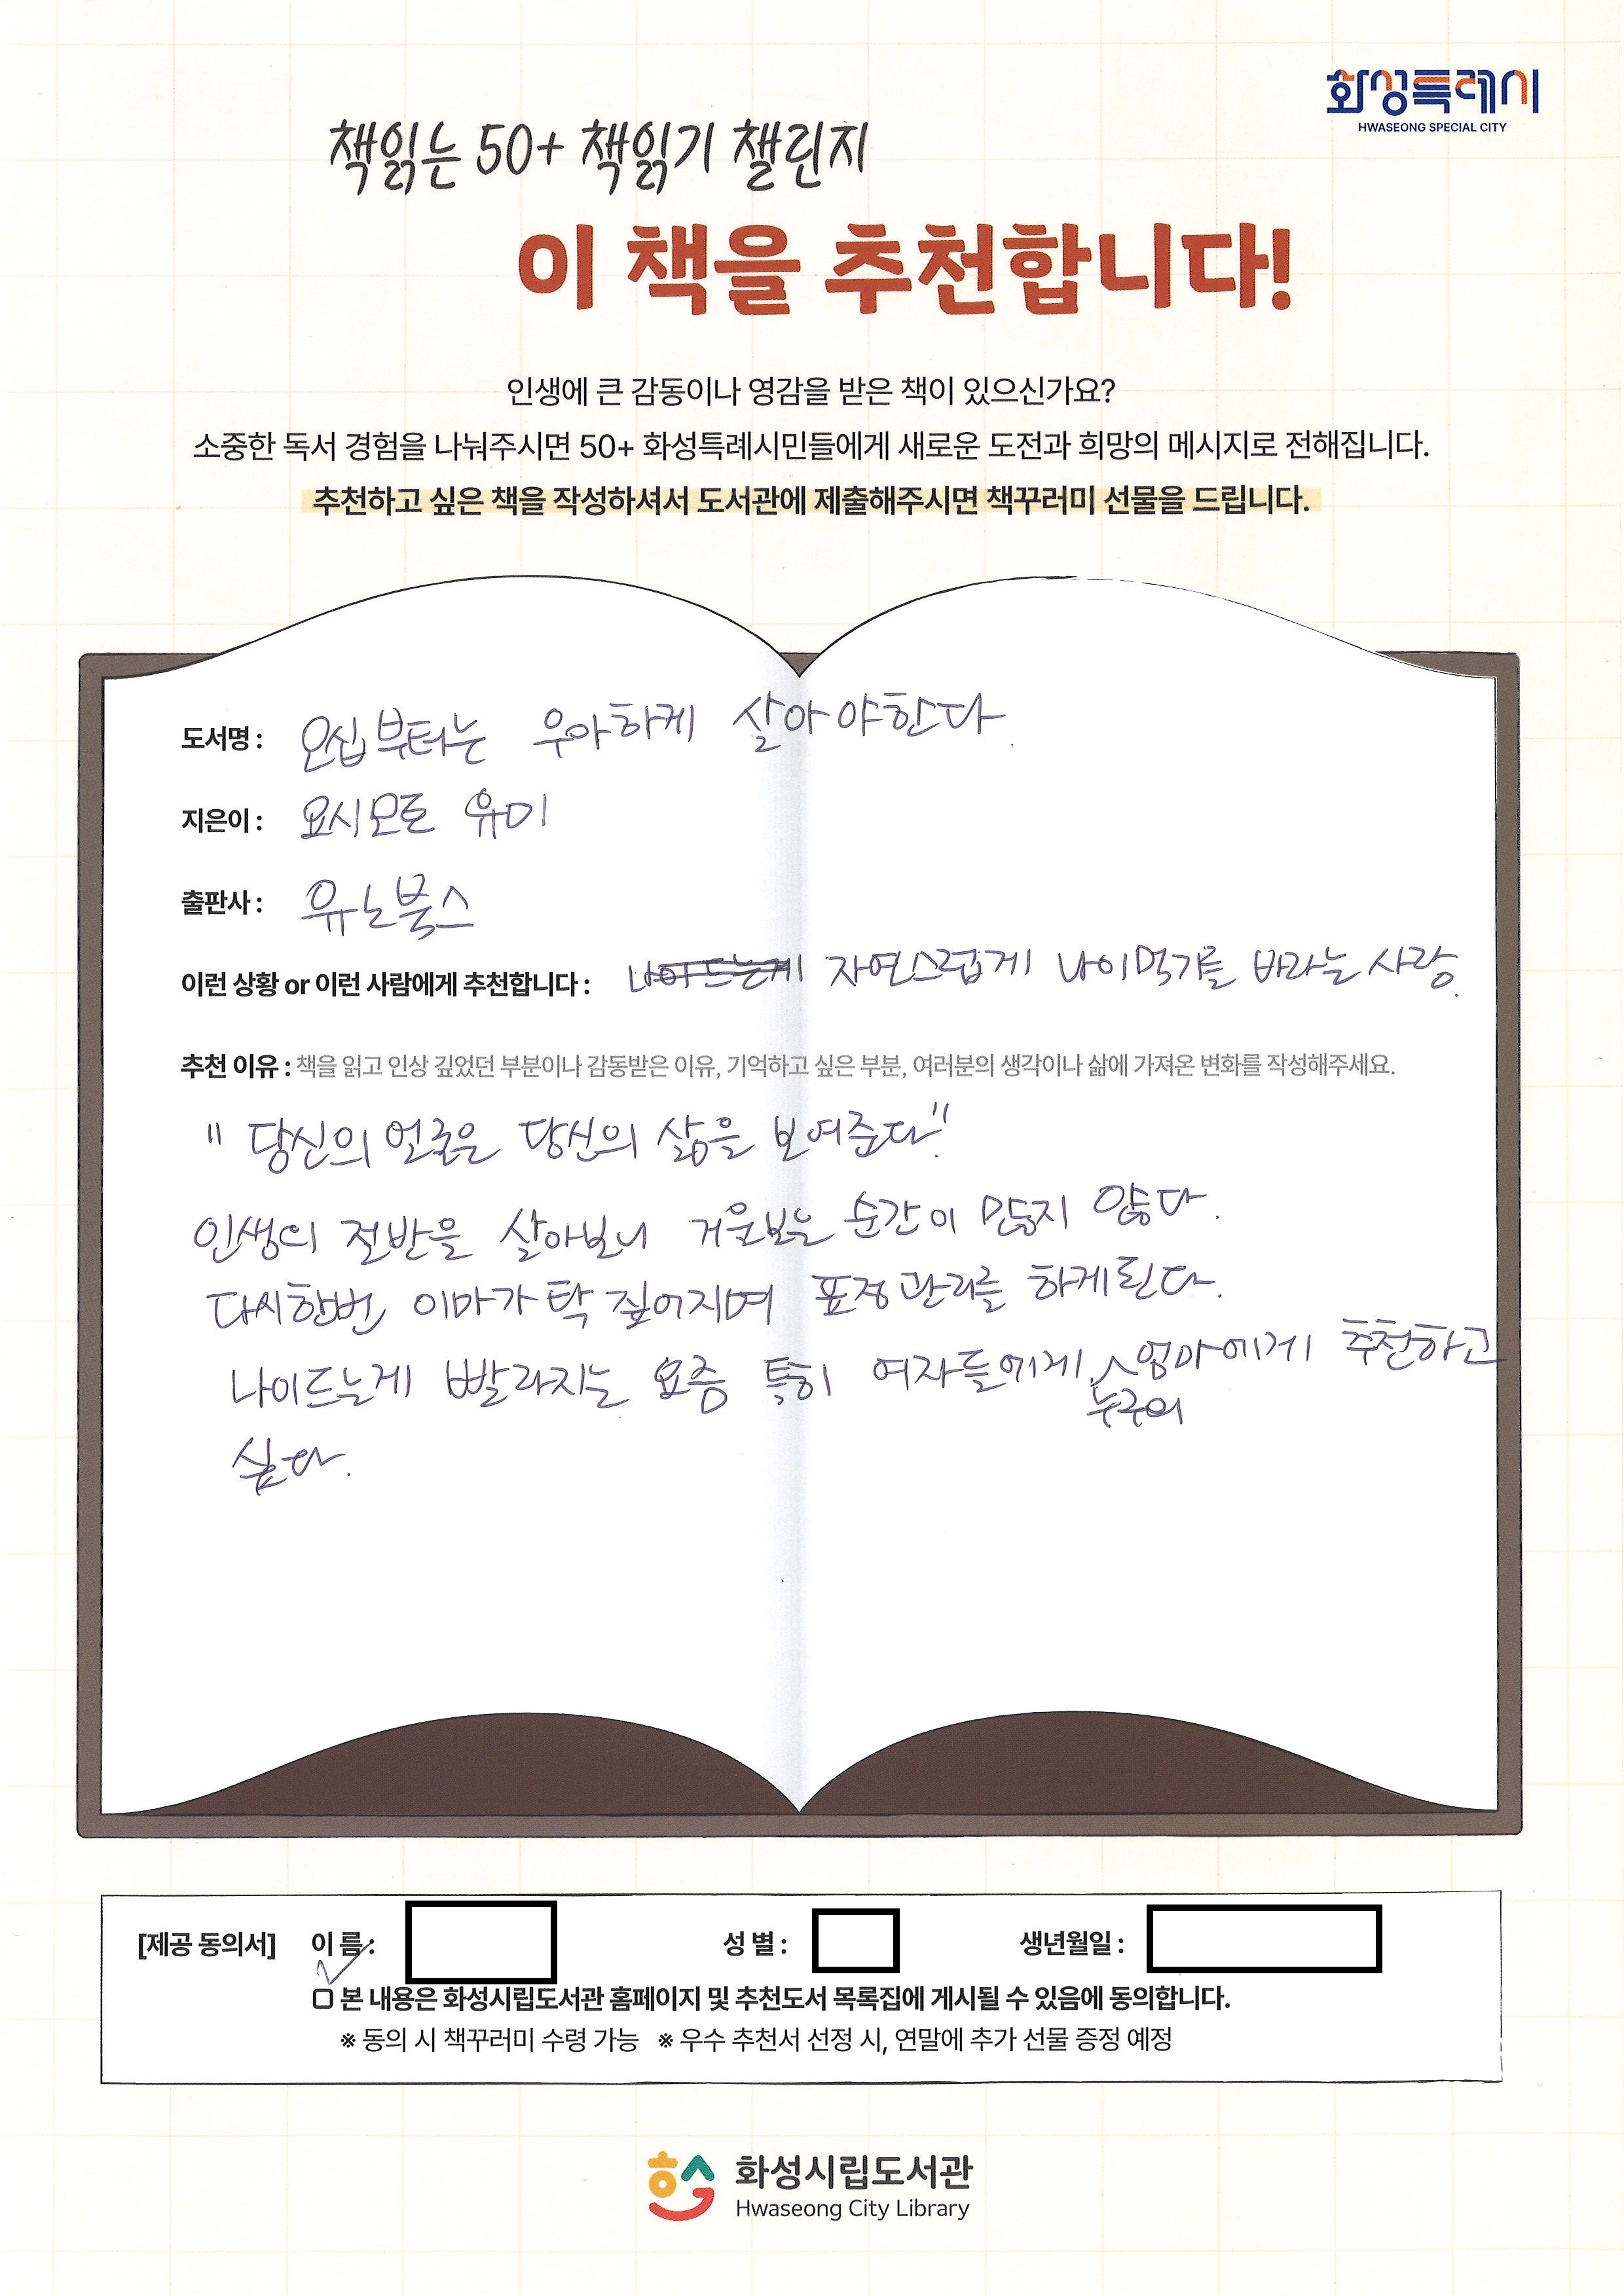 화성특례시
HWASEONG SPECIAL CITY
책읽는 50+ 책읽기 챌린지
이 책을 추천합니다!
인생에 큰 감동이나 영감을 받은 책이 있으신가요?
소중한 독서 경험을 나눠주시면 50+ 화성특례시민들에게 새로운 도전과 희망의 메시지로 전해집니다.
추천하고 싶은 책을 작성하셔서 도서관에 제출해주시면 책꾸러미 선물을 드립니다.
도서명 : 오십부터는 우아하게 살아야한다.
지은이 : 요시모토 유미
출판사 : 유노북스
이런 상황 or 이런 사람에게 추천합니다 : 나이드는게 자연스럽게 나이먹기를 바라는 사람.
추천 이유 : 책을 읽고 인상 깊었던 부분이나 감동받은 이유, 기억하고 싶은 부분, 여러분의 생각이나 삶에 가져온 변화를 작성해주세요.
" 당신의 얼굴은 당신의 삶을 보여준다."
인생의 절반을 살아보니 거울보는 순간이 많지 않다.
다시한번 이마가 탁 짚어지며 표정관리를 하게된다.
나이드는게 빨라지는 요즘 특히 여자들에게, 누구의 엄마에게 추천하고
싶다.
[제공 동의서] 이 름 : 성 별 : 생년월일 :
본 내용은 화성시립도서관 홈페이지 및 추천도서 목록집에 게시될 수 있음에 동의합니다.
※ 동의 시 책꾸러미 수령 가능 ※ 우수 추천서 선정 시, 연말에 추가 선물 증정 예정
화성시립도서관
Hwaseong City Library